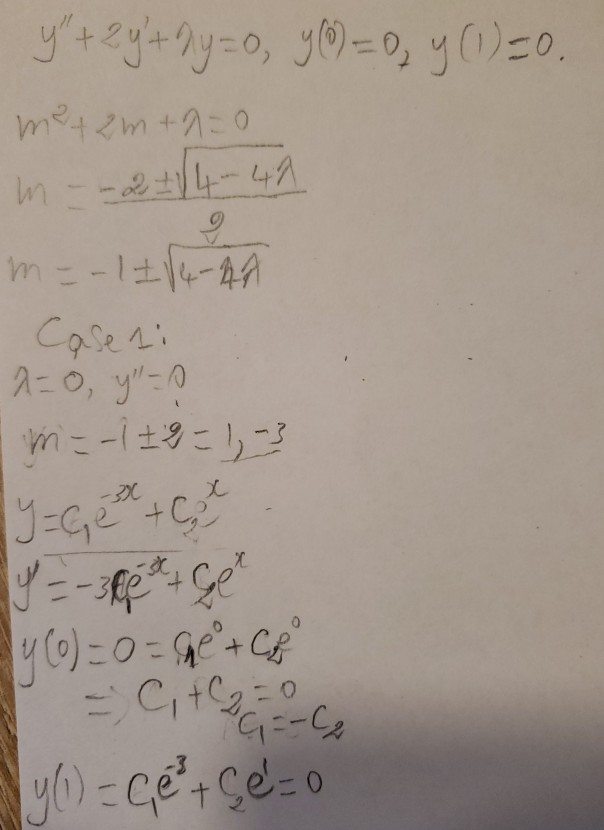 y''+2y'+λy=0, y(0)=0, y(1)=0.
m²+2m+λ=0
m = (-2±√(4-4λ))/2
m = -1±√(4-4λ)
Case 1:
λ=0, y''=0
m = -1±2 = 1, -3
y=C₁e^(-3x)+C₂e^x
y'=-3C₁e^(-3x)+C₂e^x
y(0)=0=C₁e⁰+C₂e⁰
⇒ C₁+C₂=0
C₁=-C₂
y(1)=C₁e^(-3)+C₂e¹=0